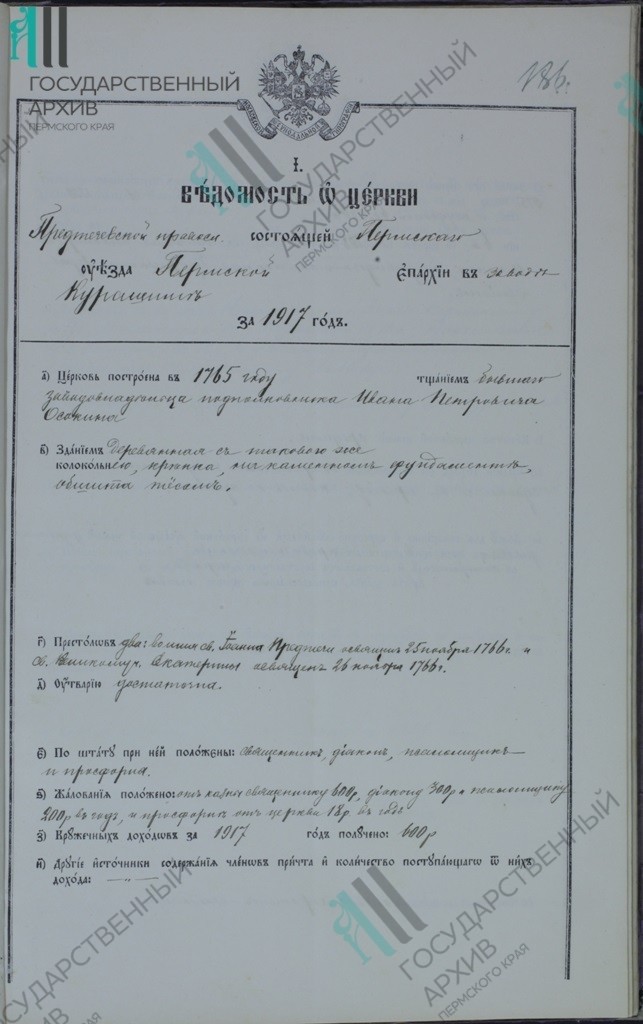 ГОСУДАРСТВЕННЫЙ
АРХИВ
ПЕРМСКОГО КРАЯ
186.
I.
Вѣдомость ѿ церкви
Предтечевской состоящей Пермскаго
оуѣзда Пермской епархіи въ заводѣ
Курашимѣ
за 1917 годъ.
а) Церковь построена въ 1765 году тщаніемъ бывшаго
подполковника Ивана Петровича
Осокина
в) Зданіемъ деревянная съ таковою же
колокольнею, крѣпка, на каменномъ фундаментѣ,
обшита тёсомъ.
г) Престоловъ два: во имя св. Іоанна Предтечи освящен 25 ноября 1766 г. и
св. Великомуч. Екатерины освящен 26 ноября 1766 г.
д) Оутварію достаточна.
є) По штату при ней положены: священникъ, діаконъ, псаломщикъ
и просфорня.
ѕ) Жалованія положено: отъ казны священнику 600 р, діакону 300 р и псаломщику
200 р въ годъ, и просфорнѣ отъ церкви 18 р въ годъ
з) Кружечныхъ доходовъ за 1917 годъ получено: 600 р
и) Другіе источники содержанія членовъ причта и количество поступающаго ѿ нихъ
дохода: — „ —
ГОСУДАРСТВЕННЫЙ
АРХИВ
ПЕРМСКОГО КРАЯ